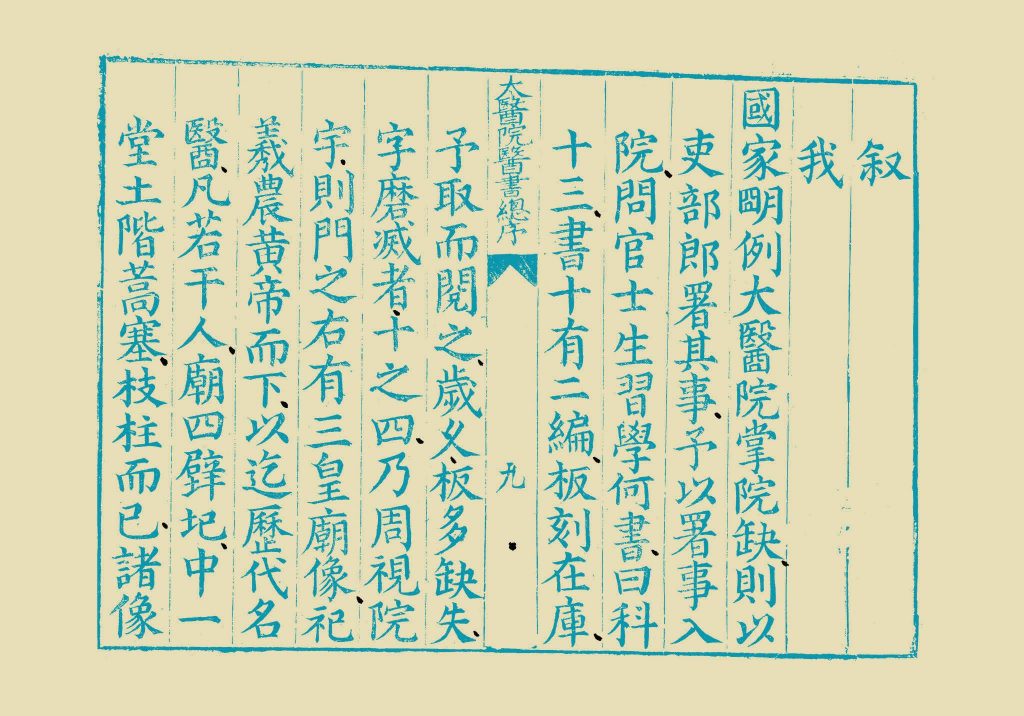 叙
我
國家朙例大醫院掌院缺則以
吏部郎署其事予以署事入
院問官士生習學何書曰科
十三書十有二編板刻在庫
太醫院醫書總序 九
予取而閱之歲久板多缺失
字磨滅者十之四乃周視院
宇則門之右有三皇廟像祀
羲農黄帝而下以迄歷代名
醫凡若干人廟四壁圮中一
堂土階蒿塞枝柱而已諸像